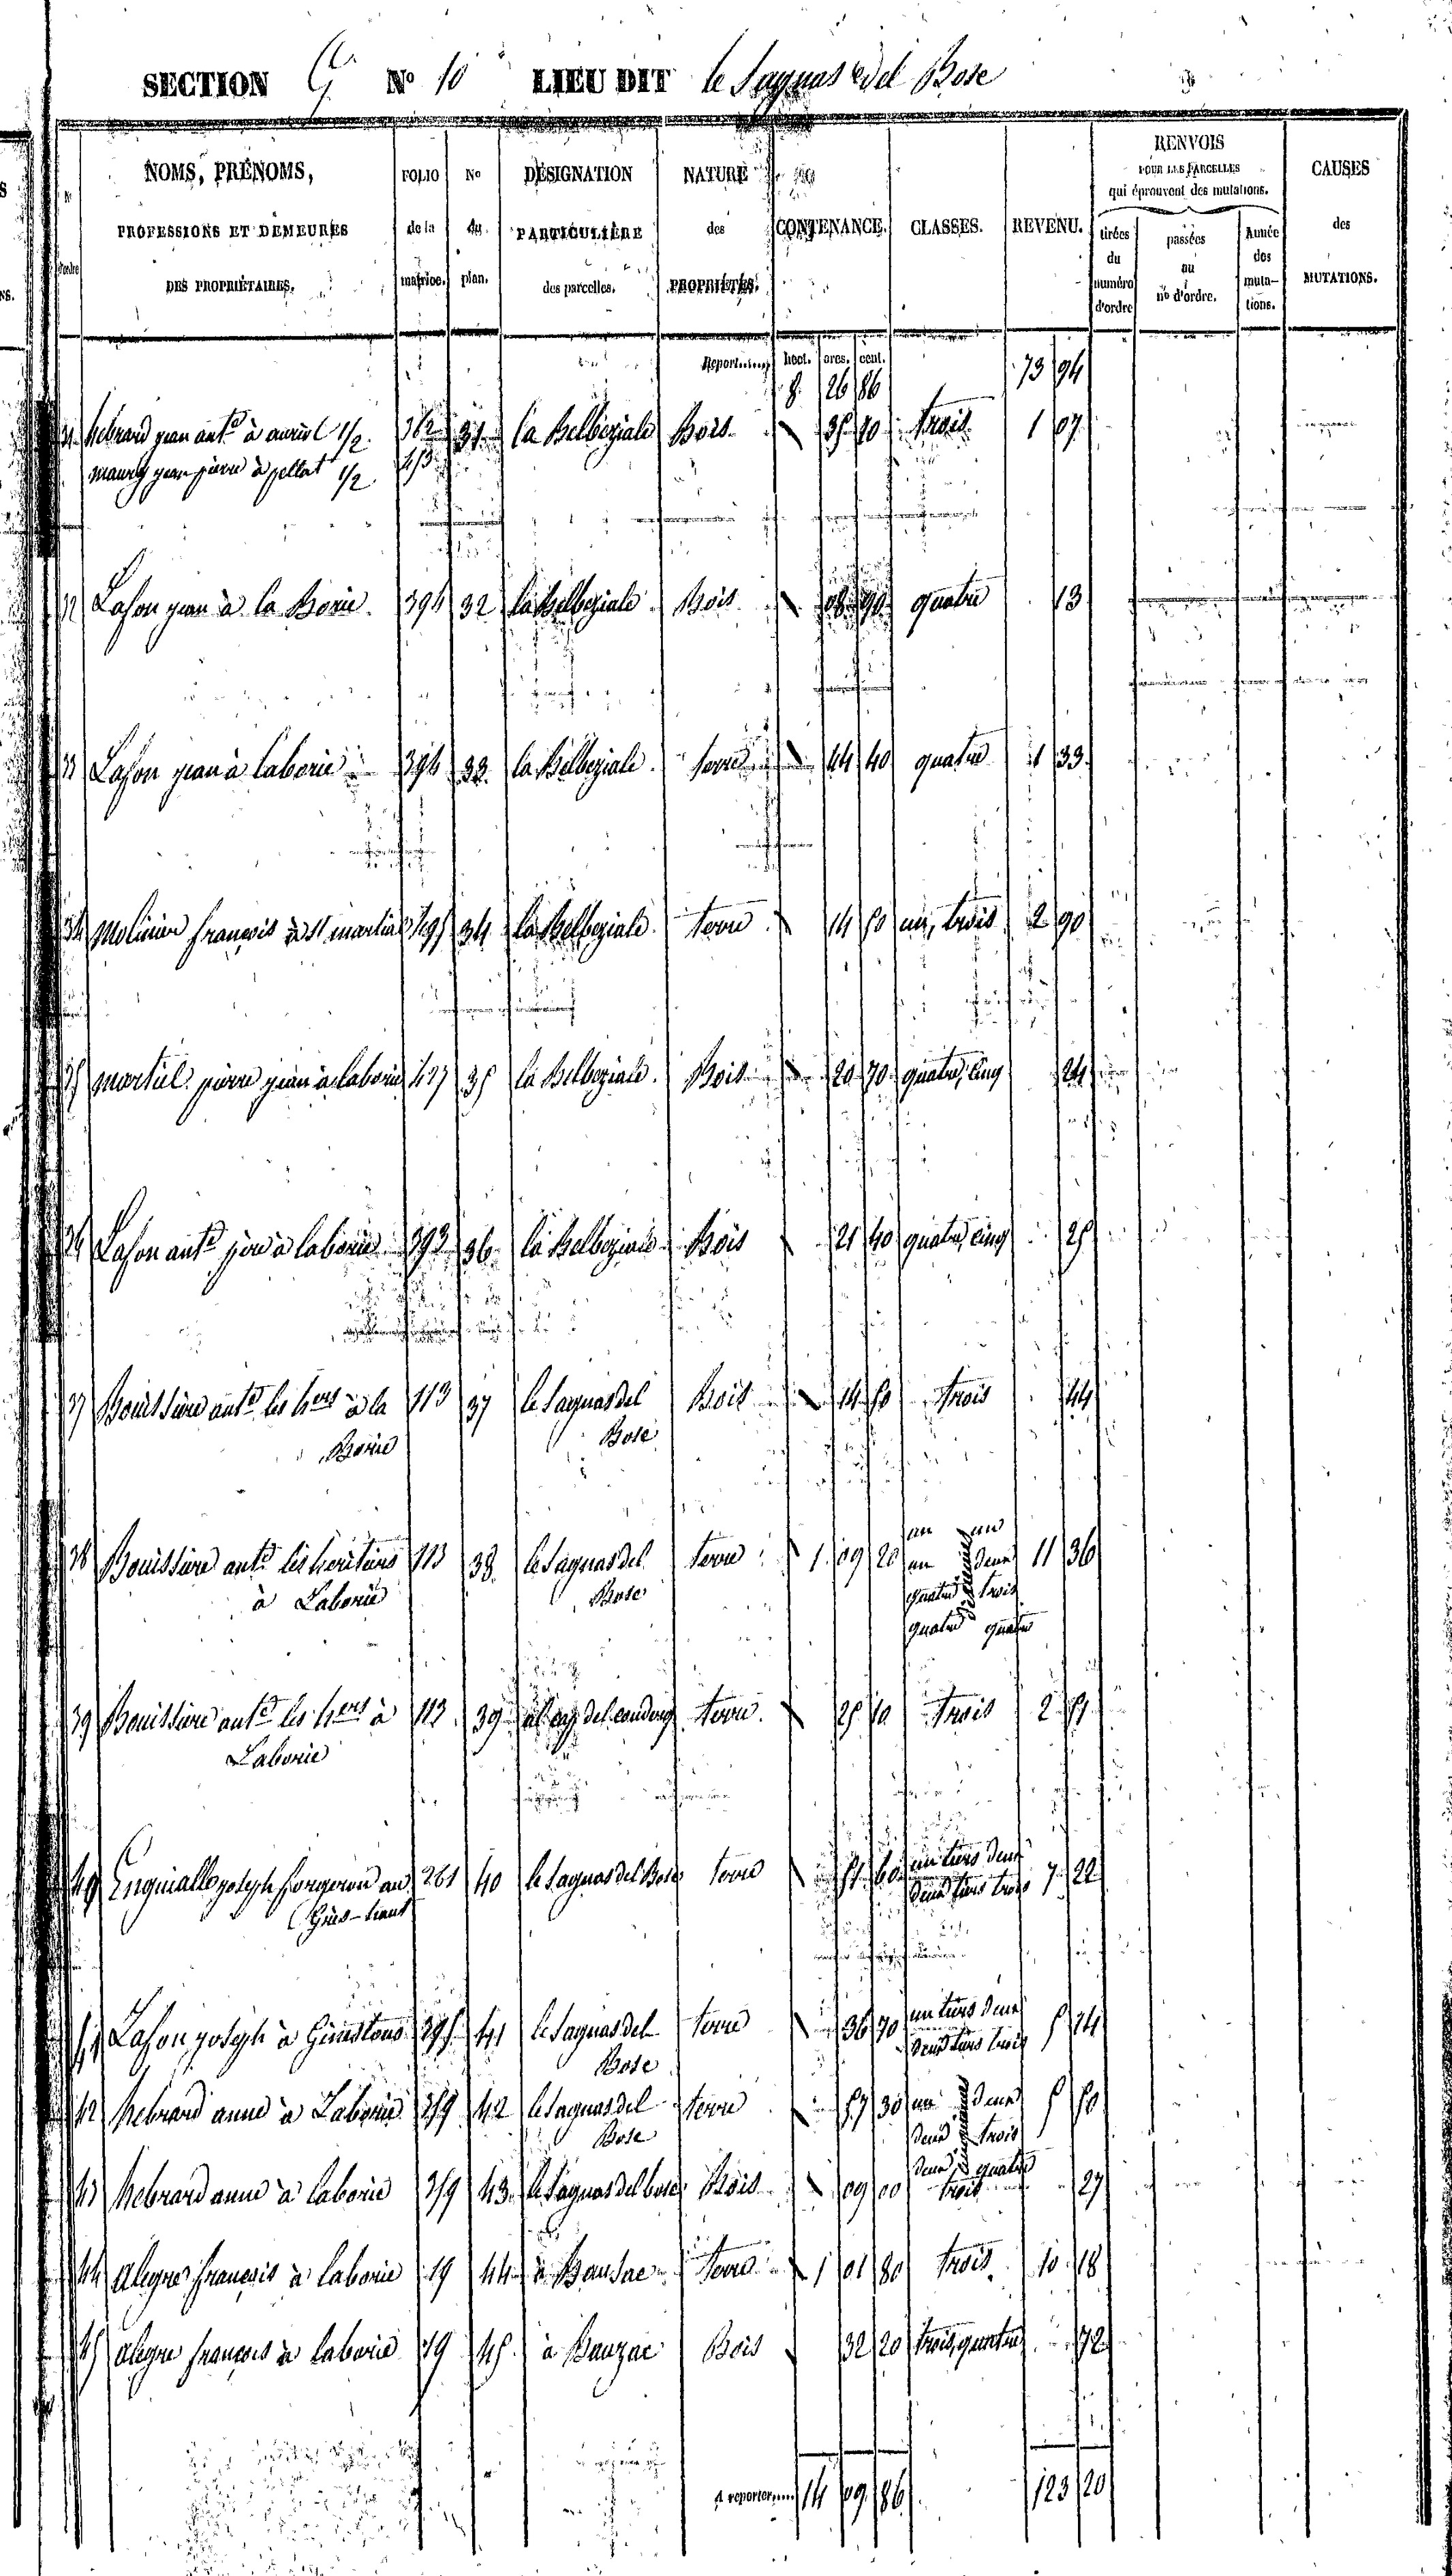 SECTION G No 10 LIEU DIT le Sagnas del Bose
NOMS, PRÉNOMS, PROFESSIONS ET DEMEURES DES PROPRIÉTAIRES.
FOLIO de la matrice.
No du plan.
DÉSIGNATION PARTICULIÈRE des parcelles.
NATURE des PROPRIÉTÉS.
CONTENANCE.
CLASSES.
REVENU.
RENVOIS POUR LES PARCELLES qui éprouvent des mutations.
tirées du numéro d'ordre
passées au no d'ordre.
Année des mutations.
CAUSES des MUTATIONS.
Report hect. ares. cent.
8 26 86 73 94
31 hebrard jean ante à 1/2 362 31 la Belbeziale Bois 35 70 trois 1 07
maury jean pierre à pellat 1/2
32 Lafon jean à la Borie 394 32 la Belbeziale Bois 08 90 quatre 13
33 Lafon jean à laborie 394 33 la Belbeziale terre 44 40 quatre 1 33
34 Molinier françois à st martial 495 34 la Belbeziale terre 14 50 un, trois 2 90
35 martiel pierre jean à laborie 427 35 la Belbeziale Bois 20 70 quatre, cinq 24
36 Lafon ante à laborie 393 36 la Belbeziale Bois 21 40 quatre, cinq 25
37 Bouissière ante les hers à la 113 37 le Sagnas del Bois 14 50 trois 44
Borie Bose
38 Bouissière ante les héritiers 113 38 le Sagnas del terre 1 09 20 un un 11 36
à Laborie Bose un deux
quatre trois
quatre quatre
39 Bouissière ante les hers à 113 39 terre 25 10 trois 2 51
Laborie
40 Enguialle joseph forgeron au 261 40 le Sagnas del Bose terre 51 60 un tiers deux 7 22
Gües-haut deux tiers trois
41 Lafon joseph à Ginestous 395 41 le Sagnas del terre 36 70 un tiers deux 5 14
Bose deux tiers trois
42 hebrard anne à Laborie 359 42 le Sagnas del terre 57 30 un deux 5 50
Bose deux trois
deux quatre
43 hebrard anne à laborie 359 43 le Sagnas del bose Bois 09 00 trois 27
44 alegre françois à laborie 19 44 à Bausac terre 1 01 80 trois 10 18
45 alegre françois à laborie 19 45 à Bauzac Bois 32 20 trois, quatre 72
A reporter 14 09 86 123 20